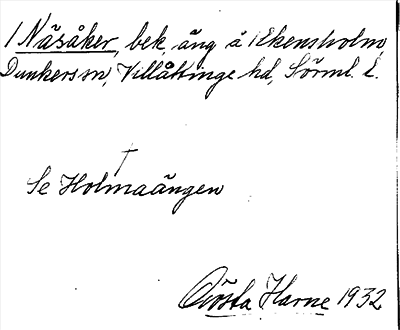 1 Näsåker, bek. äng å 1 Ekensholm,
Dunkers sn, Villåttinge hd, Sörml. l.
†
Se Holmaängen
Gösta Harne 1932